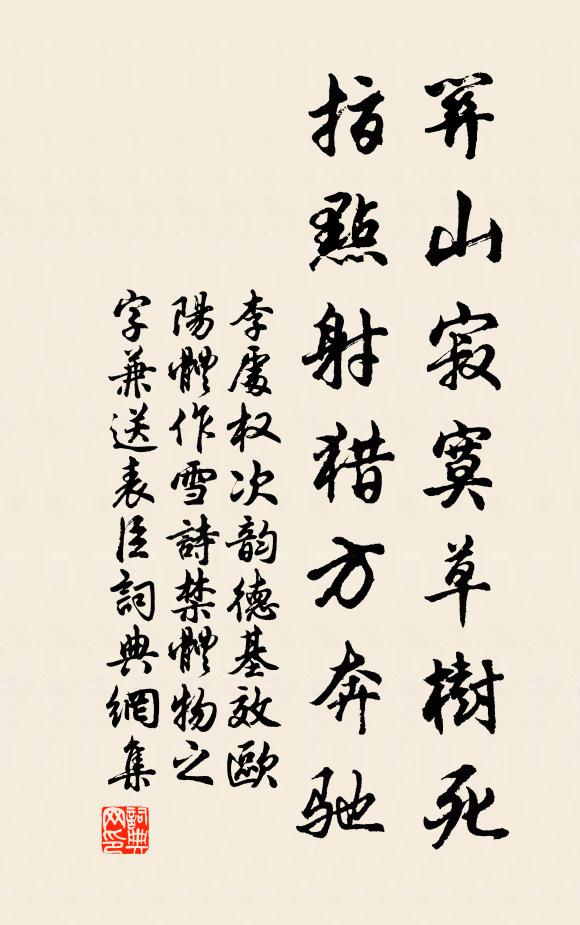 羿山寂寞草樹死
指點射猎方奔驰
李處权次韵德基效歐
陽體作雪詩禁體物之
字兼送表臣詞典網集
詞典
网印